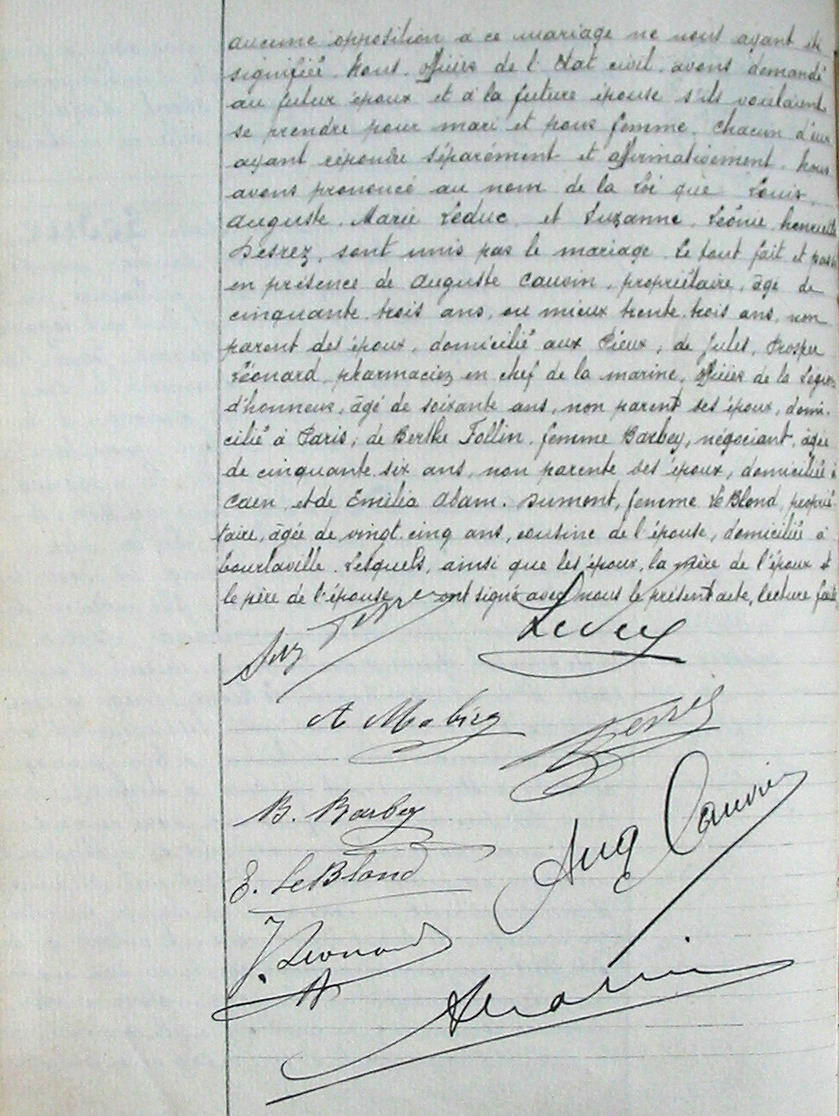 aucune opposition à ce mariage ne nous ayant été
signifié. Nous. officier de l'Etat civil. avons demandé
au futur époux et à la future épouse s'ils voulaient
se prendre pour mari et pour femme. chacun d'eux
ayant répondu séparément et affirmativement. Nous
avons prononcé au nom de la Loi que Louis.
Auguste. Marie Leduc. et Suzanne. Léonie henriette
Desrez, sont unis par le mariage. Le tout fait et passé
en présence de Auguste Cauvin, propriétaire, âgé de
cinquante trois ans, ou mieux trente trois ans, non
parent des époux, domicilié aux Pieux, de Jules, Prosper
Léonard, pharmacien en chef de la marine, officier de la Légion
d'honneur, âgé de soixante ans, non parent des époux, domi-
cilié à Paris, de Berthe Follin, femme Barbey, négociant, âgée
de cinquante six ans, non parente des époux, domiciliée à
Caen, et de Emilia Adam. Dumont, femme LeBlond, proprié-
taire, âgée de vingt cinq ans, cousine de l'épouse, domicilié à
Tourlaville. Lesquels, ainsi que les époux, la mère de l'époux et
le père de l'épouse ont signé avec nous le présent acte, lecture faite
Leduc
A Mabire
Desrez
B. Barbey
Aug Cauvin
E. LeBlond
J. Leonard